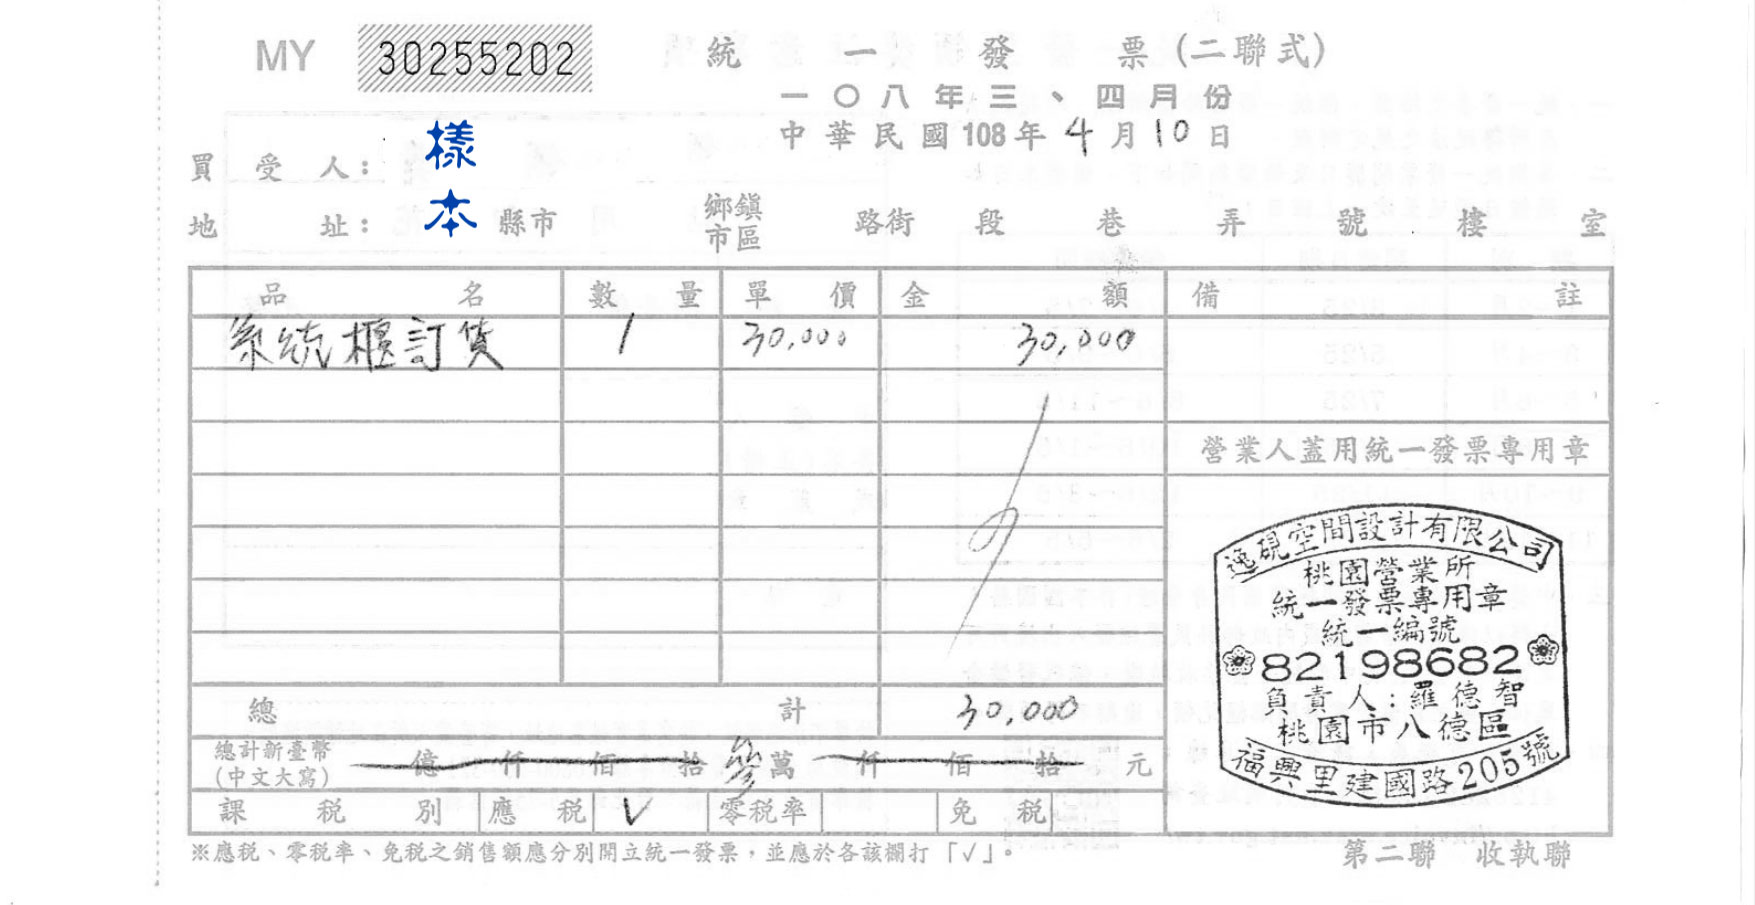 MY 30255202 統一發票(二聯式)
一〇八年三、四月份
中華民國108年4月10日
買受人：樣本
地址： 縣市 鄉鎮市區 路街 段 巷 弄 號 樓 室
品名 數量 單價 金額 備註
系統櫃訂貨 1 30,000 30,000
營業人蓋用統一發票專用章
逸硯空間設計有限公司
桃園營業所
統一發票專用章
統一編號
82198682
負責人:羅德智
桃園市八德區
福興里建國路205號
總計 30,000
總計新臺幣(中文大寫) 億 仟 佰 拾 參萬 仟 佰 拾 元
課稅別 應稅 √ 零稅率 免稅
※應稅、零稅率、免稅之銷售額應分別開立統一發票，並應於各該欄打「√」。
第二聯 收執聯